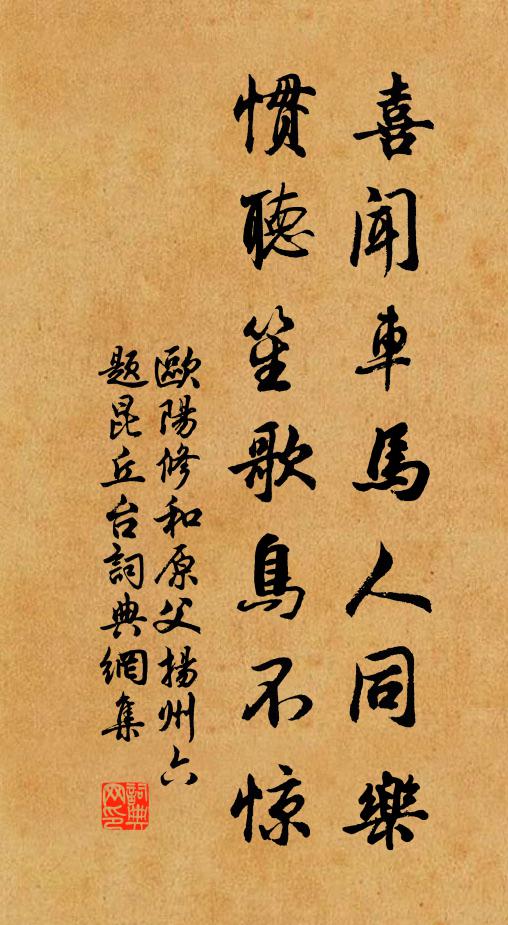 喜聞車馬人同樂
慣聽笙歌鳥不惊
歐陽修和原父揚州六
題昆丘台詞典網集
詞典网印